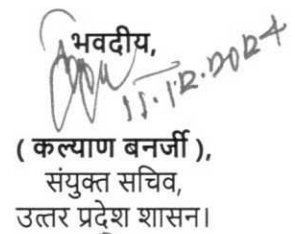 भवदीय,
11.12.2024
( कल्याण बनर्जी ),
संयुक्त सचिव,
उत्तर प्रदेश शासन।